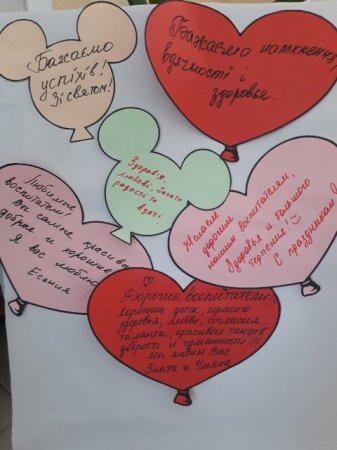 Бажаємо
успіхів!
Зі святом!
Бажаємо натхнення,
вдячності і
здоровья.
Здоровія,
любові, багато
радості та
Любимые
воспитатели!
Вы самые красивые
добрые и хорошие
Я вас люблю
Есения
Желаем
дорогим
нашим воспитателям,
Здоровья и большого
Терпения!
С праздником!
Дорогие, воспитатели!!!
Хороших деток, горашо
здоровья, любви, согласия
таланта, красивых танцев
доброты и гуманности!!!
мы любим Вас
Злата и Ульяна